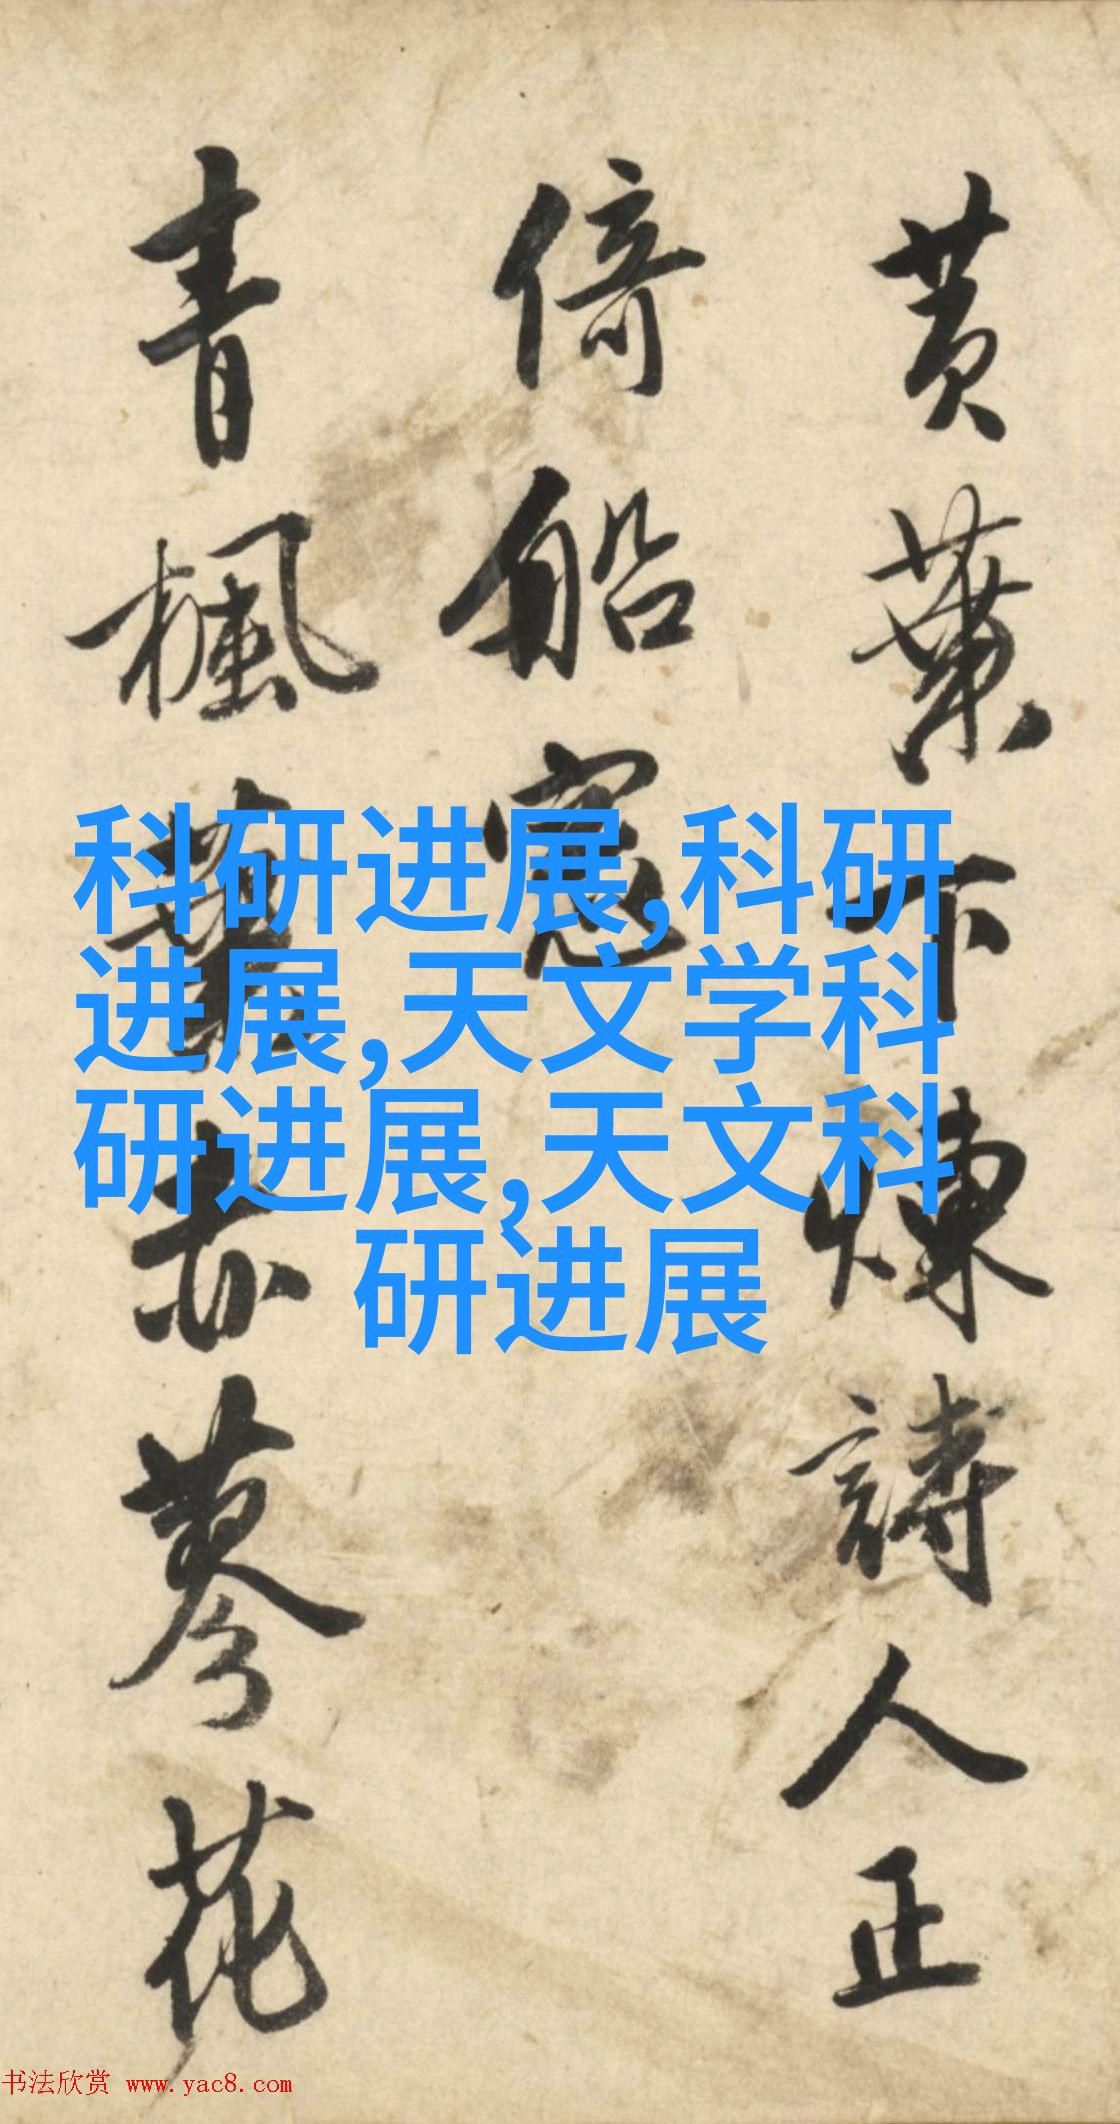 黄葉下煉詩人正
倚船窓
青楓赤蓼花
科研进展,科研
进展,天文学科
研进展,天文科
研进展
书法欣赏 www.yac8.com